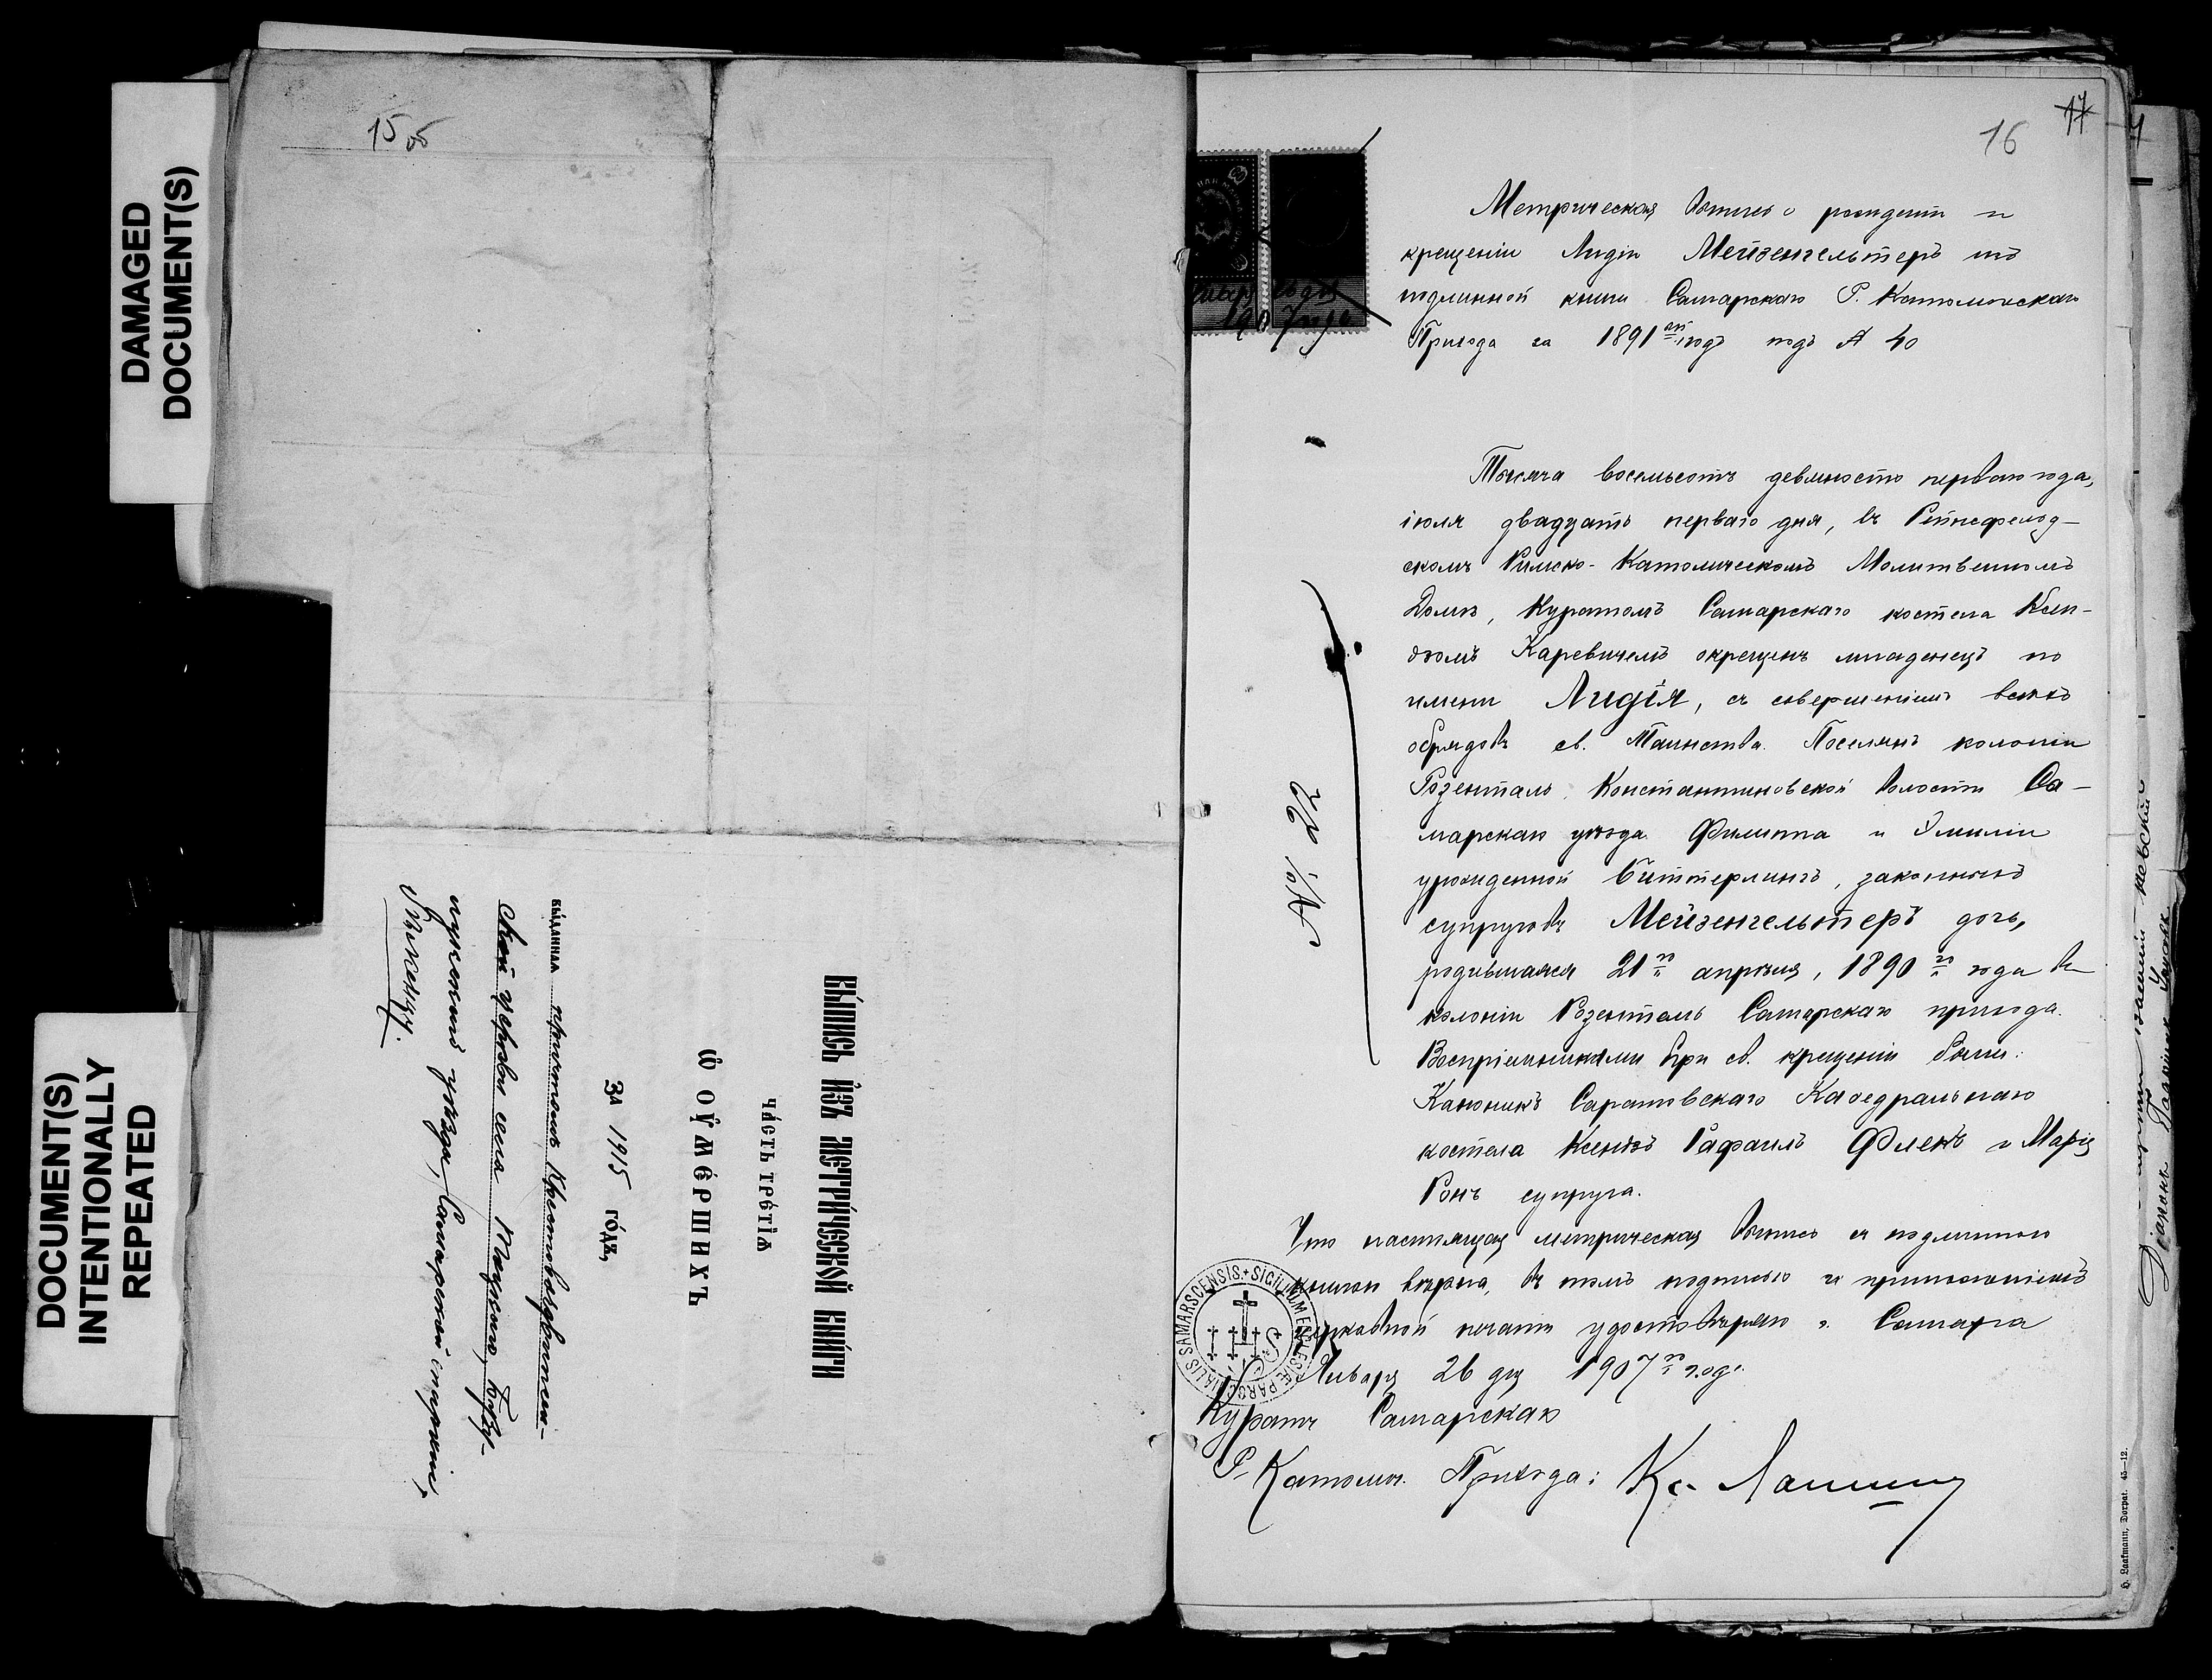 DAMAGED
DOCUMENT(S)
DOCUMENT(S)
INTENTIONALLY
REPEATED
15 об
ВЫПИСЬ ИЗЪ МЕТРИЧЕСКОЙ КНИГИ
ЧАСТЬ ТРЕТІЯ
Ѿ ОУМЕРШИХЪ
ЗА 1915 ГОДЪ,
ВЫДАННАЯ причтомъ Крестовоздвижен-
ской церкви села Бузу-
лукскаго уѣзда, Самарской епархіи,
16
17
Метрическая выпись о рожденіи и
крещеніи Лидіи Мейзенгельтеръ изъ
подлинной книги Самарскаго Р. Католическаго
Прихода за 1891ый годъ подъ № 40
Тысяча восемьсотъ девяносто перваго года,
іюля двадцать перваго дня, въ Рейнсфельд-
скомъ Римско-Католическомъ Молитвенномъ
Домѣ, Куратомъ Самарскаго костела Ксен-
дзомъ Каревичемъ окрещенъ младенецъ по
имени Лидія, съ совершеніемъ всѣхъ
обрядовъ св. Таинства. Поселянъ колоніи
Розенталь Константиновской волости Са-
марскаго уѣзда Филиппа и Эмиліи
урожденной Биттерлингъ, законныхъ
супруговъ Мейзенгельтеръ дочь,
родившаяся 21го апрѣля, 1890го года въ
колоніи Розенталь Самарскаго прихода.
Воспріемниками при св. крещеніи были:
Каноникъ Саратовскаго Каѳедральнаго
костела Ксендзъ Рафаилъ Флекъ и Марія
Ронъ супруга.
Что настоящая метрическая выпись съ подлинною
книгою вѣрна, въ томъ подписью и приложеніемъ
церковной печати удостовѣряю г. Самара
Января 26 дня 1907го года.
Куратъ Самарскаго
Р. Католич. Прихода: Кс.
№ 92
SIGILLUM ECCLESIAE PAROCHIALIS SAMARSCENSIS
H. Laakmann, Dorpat. 45—12.